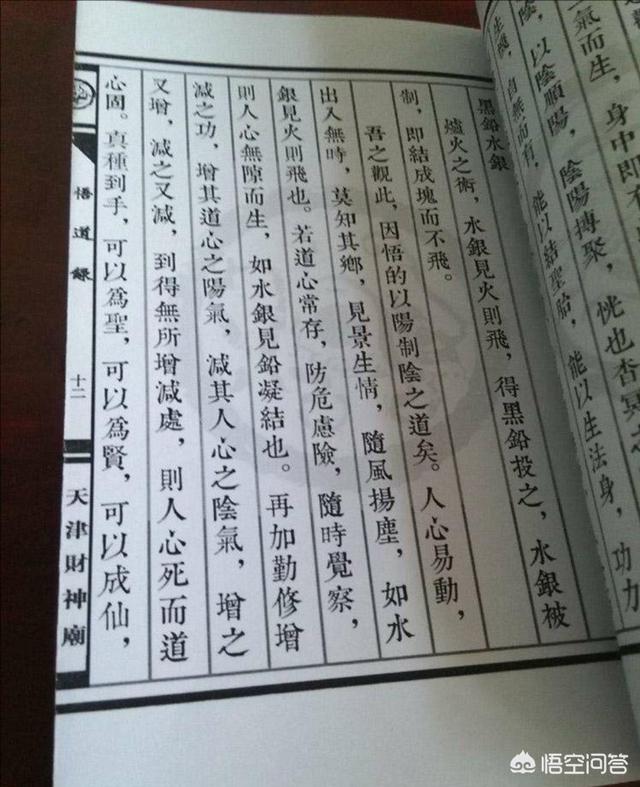 生機，自無而有，能以結聖胎，能以生法身，功力
，以陰順陽，陰陽摶聚，恍也杳冥
氣而生，身中即具
黑鉛水銀
爐火之術，水銀見火則飛，得黑鉛投之，水銀被
制，即結成塊而不飛。
吾之觀此，因悟的以陽制陰之道矣。人心易動，
出入無時，莫知其鄉，見景生情，隨風揚塵，如水
銀見火則飛也。若道心常存，防危慮險，隨時覺察，
則人心無隙而生，如水銀見鉛凝結也。再加勤修增
減之功，增其道心之陽氣，減其人心之陰氣，增之
又增，減之又減，到得無所增減處，則人心死而道
心固。真種到手，可以為聖，可以為賢，可以成仙，
悟道錄
十二
天津財神廟
悟空问答